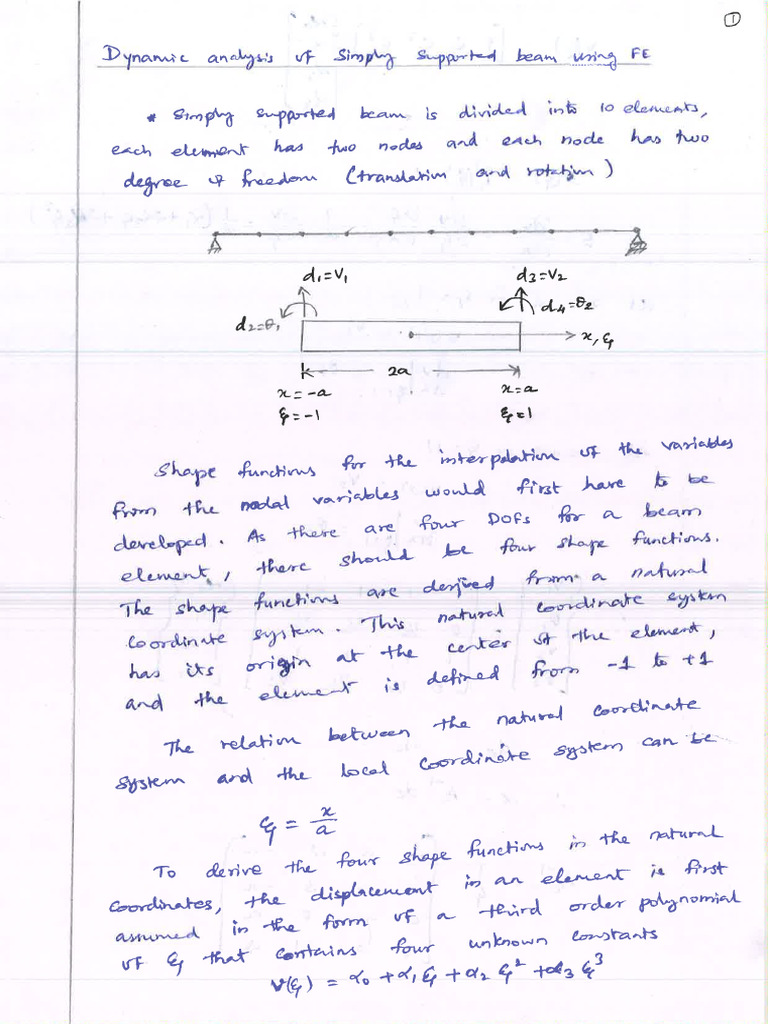 ①
Dynamic analysis of Simply Supported beam using FE
* Simply supported beam is divided into 10 elements,
each element has two nodes and each node has two
degree of freedom (translation and rotation)
d₁=V₁
d₃=V₂
d₂=θ₁
d₄=θ₂
x, ξ
2a
x=-a
x=a
ξ=-1
ξ=1
Shape functions for the interpolation of the variables
from the nodal variables would first have to be
developed. As there are four DOFs for a beam
element, there should be four shape functions.
The shape functions are derived from a natural
coordinate system. This natural coordinate system
has its origin at the center of the element,
and the element is defined from -1 to +1
The relation between the natural coordinate
system and the local coordinate system can be
ξ = x/a
To derive the four shape functions in the natural
coordinates, the displacement in an element is first
assumed in the form of a third order polynomial
of ξ that contains four unknown constants
v(ξ) = α₀ + α₁ξ + α₂ ξ² + α₃ ξ³